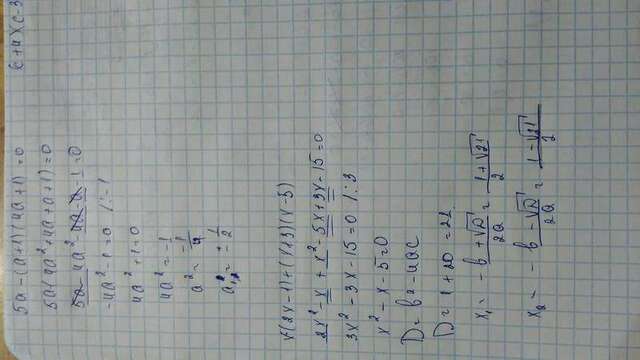 5a-(a+1)(4a+1)=0
5a(4a²+4a+a+1)=0
5a-4a²-4a-a-1=0
-4a²-1=0 /:-1
4a²+1=0
4a²=-1
a²=-1/4
a₁,₂=±1/2
x(2x-1)+(x+3)(x-5)
2x²-x+x²-5x+3x-15=0
3x²-3x-15=0 /:3
x²-x-5=0
D=b²-4ac
D=1+20=21
x₁=-b+√D/2a=1+√21/2
x₂=-b-√D/2a=1-√21/2